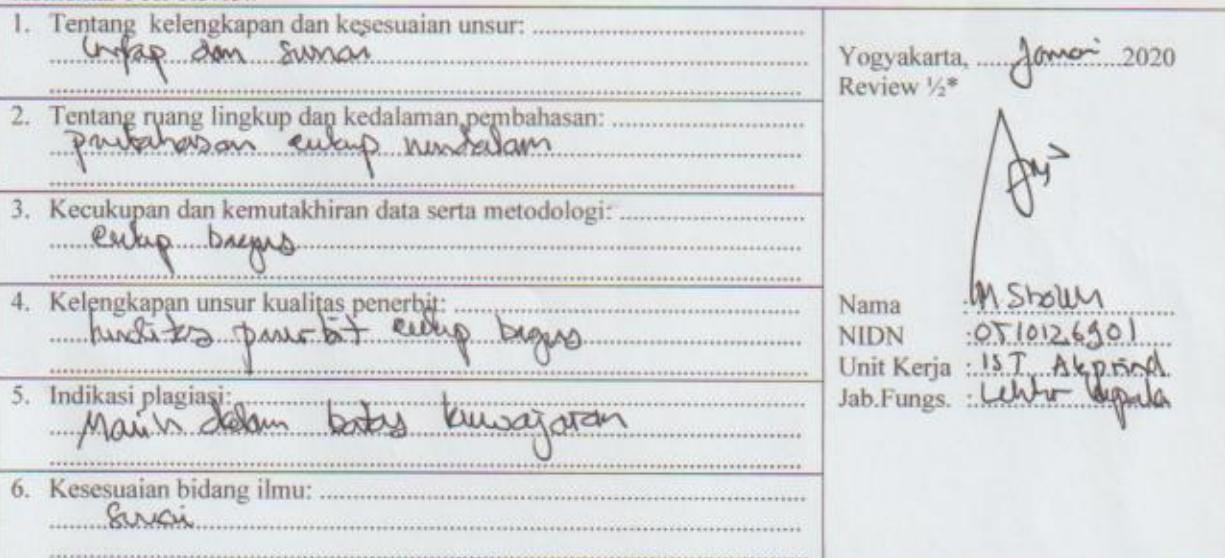 1. Tentang kelengkapan dan kesesuaian unsur:
dan sesuai
2. Tentang ruang lingkup dan kedalaman pembahasan:
pembahasan cukup mendalam
3. Kecukupan dan kemutakhiran data serta metodologi:
cukup bagus
4. Kelengkapan unsur kualitas penerbit:
kualitas penerbit cukup bagus
5. Indikasi plagiasi:
Masih dalam batas kewajaran
6. Kesesuaian bidang ilmu:
Sesuai
Yogyakarta, Januari 2020
Review ½*
Nama : M Sholeh
NIDN : 0510126901
Unit Kerja : IST. Akprind
Jab.Fungs. : Lektor Kepala